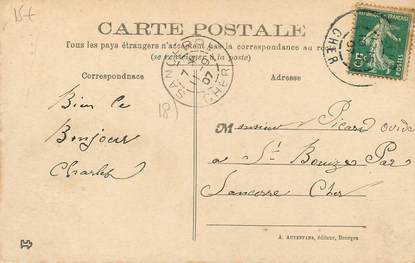 15f
CARTE POSTALE
Tous les pays étrangers n'acceptent pas la correspondance au
(se renseigner à la poste)
Correspondance
Adresse
CHER
CHER
07
18
Bien le
Bonjour
Charles
Monsieur Picard ovide
a St Bouize Par
Sancerre Cher
A. AUXENFANS, éditeur, Bourges